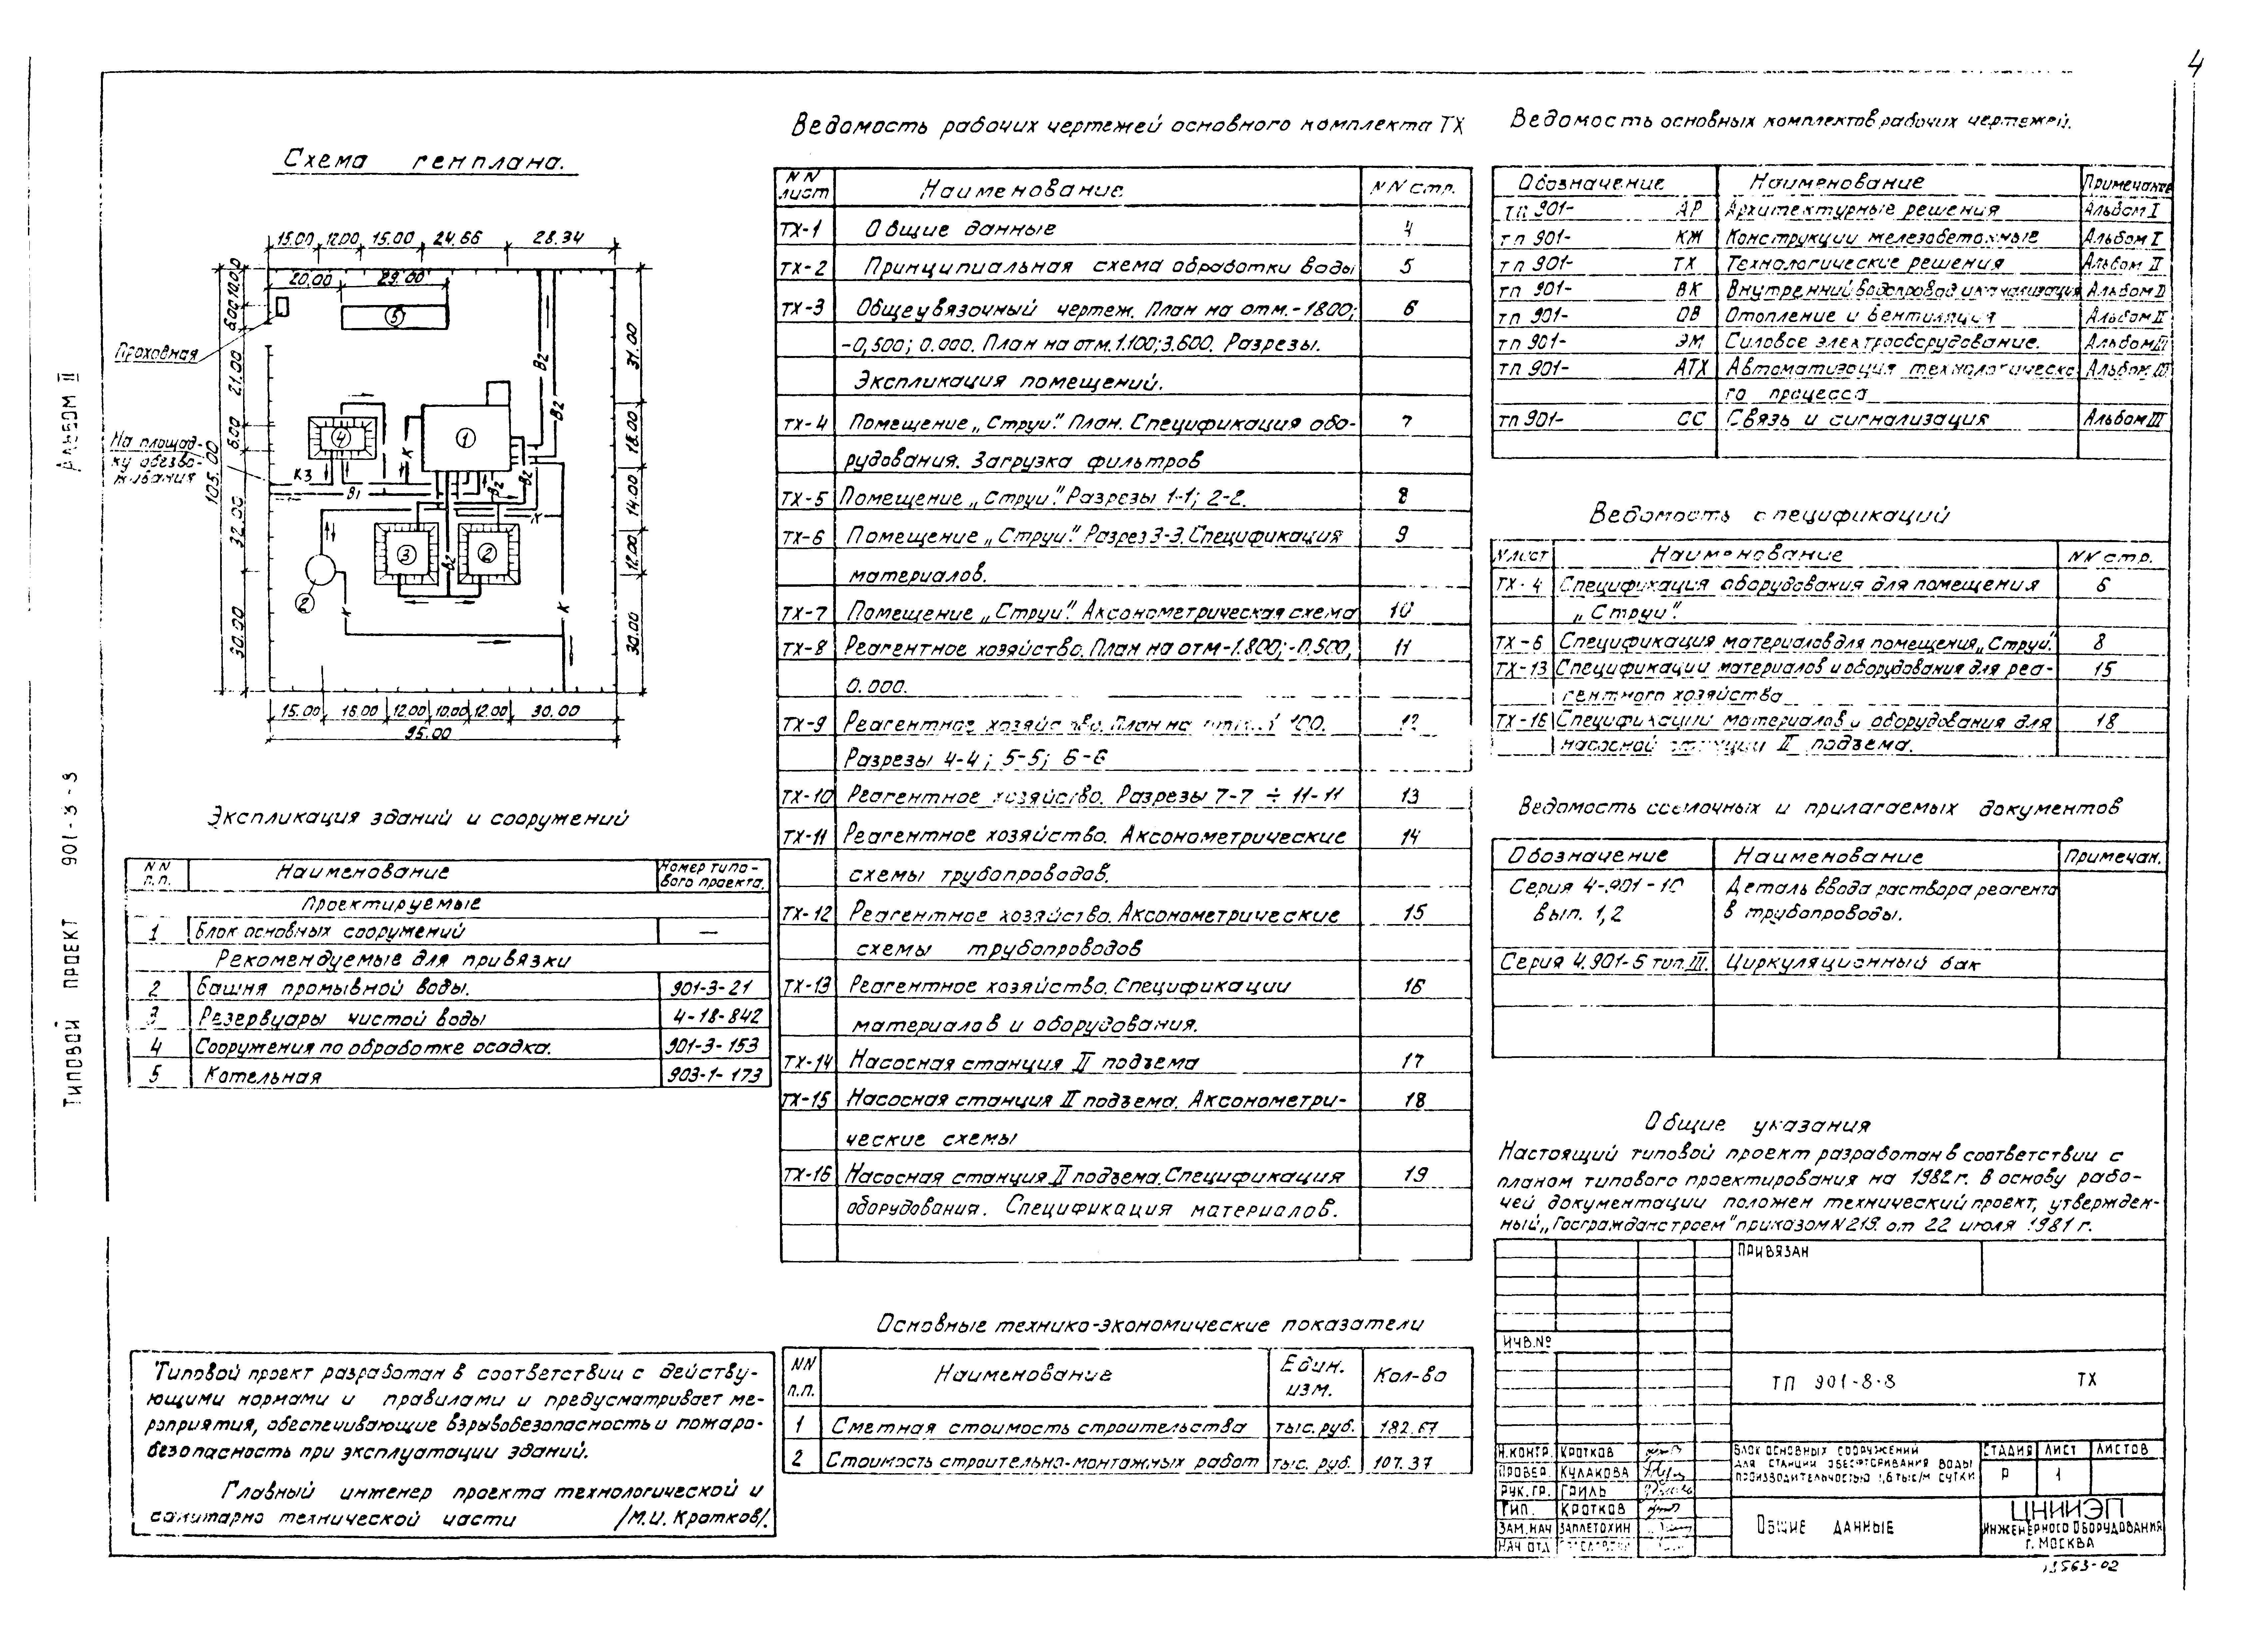 4
Альбом II
Типовой проект 901-3-3
Схема генплана.
15.00 12.00 15.00 24.66 28.34
20.00 29.00
5
Проходная
6.00 10.00
21.00
6.00
32.00
30.00
105.00
31.00
18.00
14.00
12.00
30.00
На площад-
ку обезво-
живания
К3
В1
К
В2
В2
В2
В2
К
К
К
4
1
3
2
2
15.00 16.00 12.00 10.00 12.00 30.00
95.00
Экспликация зданий и сооружений
NN п.п. Наименование Номер типо-
вого проекта.
Проектируемые
1 Блок основных сооружений —
Рекомендуемые для привязки
2 Башня промывной воды. 901-3-21
3 Резервуары чистой воды 4-18-842
4 Сооружения по обработке осадка. 901-3-153
5 Котельная 903-1-173
Типовой проект разработан в соответствии с действу-
ющими нормами и правилами и предусматривает ме-
роприятия, обеспечивающие взрывобезопасность и пожаро-
безопасность при эксплуатации зданий.
Главный инженер проекта технологической и
санитарно технической части /М.И. Кротков/.
Ведомость рабочих чертежей основного комплекта ТХ
NN лист Наименование NN стр.
ТХ-1 Общие данные 4
ТХ-2 Принципиальная схема обработки воды 5
ТХ-3 Общеувязочный чертеж. План на отм.-1800; 6
-0,500; 0.000. План на отм.1.100; 3.600. Разрезы.
Экспликация помещений.
ТХ-4 Помещение „Струи". План. Спецификация обо- 7
рудования. Загрузка фильтров
ТХ-5 Помещение „Струи". Разрезы 1-1; 2-2. 8
ТХ-6 Помещение „Струи". Разрез 3-3. Спецификация 9
материалов.
ТХ-7 Помещение „Струи". Аксонометрическая схема 10
ТХ-8 Реагентное хозяйство. План на отм-1.800; -0,500, 11
0.000.
ТХ-9 Реагентное хозяйство. План на 100. 12
Разрезы 4-4; 5-5; 6-6
ТХ-10 Реагентное хозяйство. Разрезы 7-7 ÷ 11-11 13
ТХ-11 Реагентное хозяйство. Аксонометрические 14
схемы трубопроводов.
ТХ-12 Реагентное хозяйство. Аксонометрические 15
схемы трубопроводов
ТХ-13 Реагентное хозяйство. Спецификации 16
материалов и оборудования.
ТХ-14 Насосная станция II подъема 17
ТХ-15 Насосная станция II подъема. Аксонометри- 18
ческие схемы
ТХ-16 Насосная станция II подъема. Спецификация 19
оборудования. Спецификация материалов.
Основные технико-экономические показатели
NN п.п. Наименование Един. изм. Кол-во
1 Сметная стоимость строительства тыс. руб. 182.67
2 Стоимость строительно-монтажных работ тыс. руб. 107.37
Ведомость основных комплектов рабочих чертежей.
Обозначение Наименование Примечание
тп 901- АР Архитектурные решения Альбом I
тп 901- КЖ Конструкции железобетонные Альбом I
тп 901- ТХ Технологические решения Альбом II
тп 901- ВК Внутренний водопровод и канализация Альбом II
тп 901- ОВ Отопление и вентиляция Альбом II
тп 901- ЭМ Силовое электрооборудование. Альбом III
тп 901- АТХ Автоматизация технологическо Альбом III
го процесса
тп 901- СС Связь и сигнализация Альбом III
Ведомость спецификаций
N лист Наименование NN стр.
ТХ-4 Спецификация оборудования для помещения 6
„Струи".
ТХ-6 Спецификация материалов для помещения „Струи". 8
ТХ-13 Спецификации материалов и оборудования для реа- 15
гентного хозяйства
ТХ-16 Спецификации материалов и оборудования для 18
насосной станции II подъема.
Ведомость ссылочных и прилагаемых документов
Обозначение Наименование Примечан.
Серия 4-901-10 Деталь ввода раствора реагента
вып. 1,2 в трубопроводы.
Серия 4.901-5 тип. III. Циркуляционный бак
Общие указания
Настоящий типовой проект разработан в соответствии с
планом типового проектирования на 1982 г. В основу рабо-
чей документации положен технический проект, утвержден-
ный „Госгражданстроем" приказом N 219 от 22 июля 1981 г.
Привязан
Инв.№
ТП 901-8-8 ТХ
Н.контр. Кротков
Провер. Кулакова
Рук.гр. Гриль
Гип. Кротков
Зам.нач Заплетохин
Нач отд
Блок основных сооружений
для станции обесфторивания воды
производительностью 1,6 тыс/м сутки
Стадия Лист Листов
Р 1
Общие данные
ЦНИИЭП
инженерного оборудования
г. Москва
13563-02